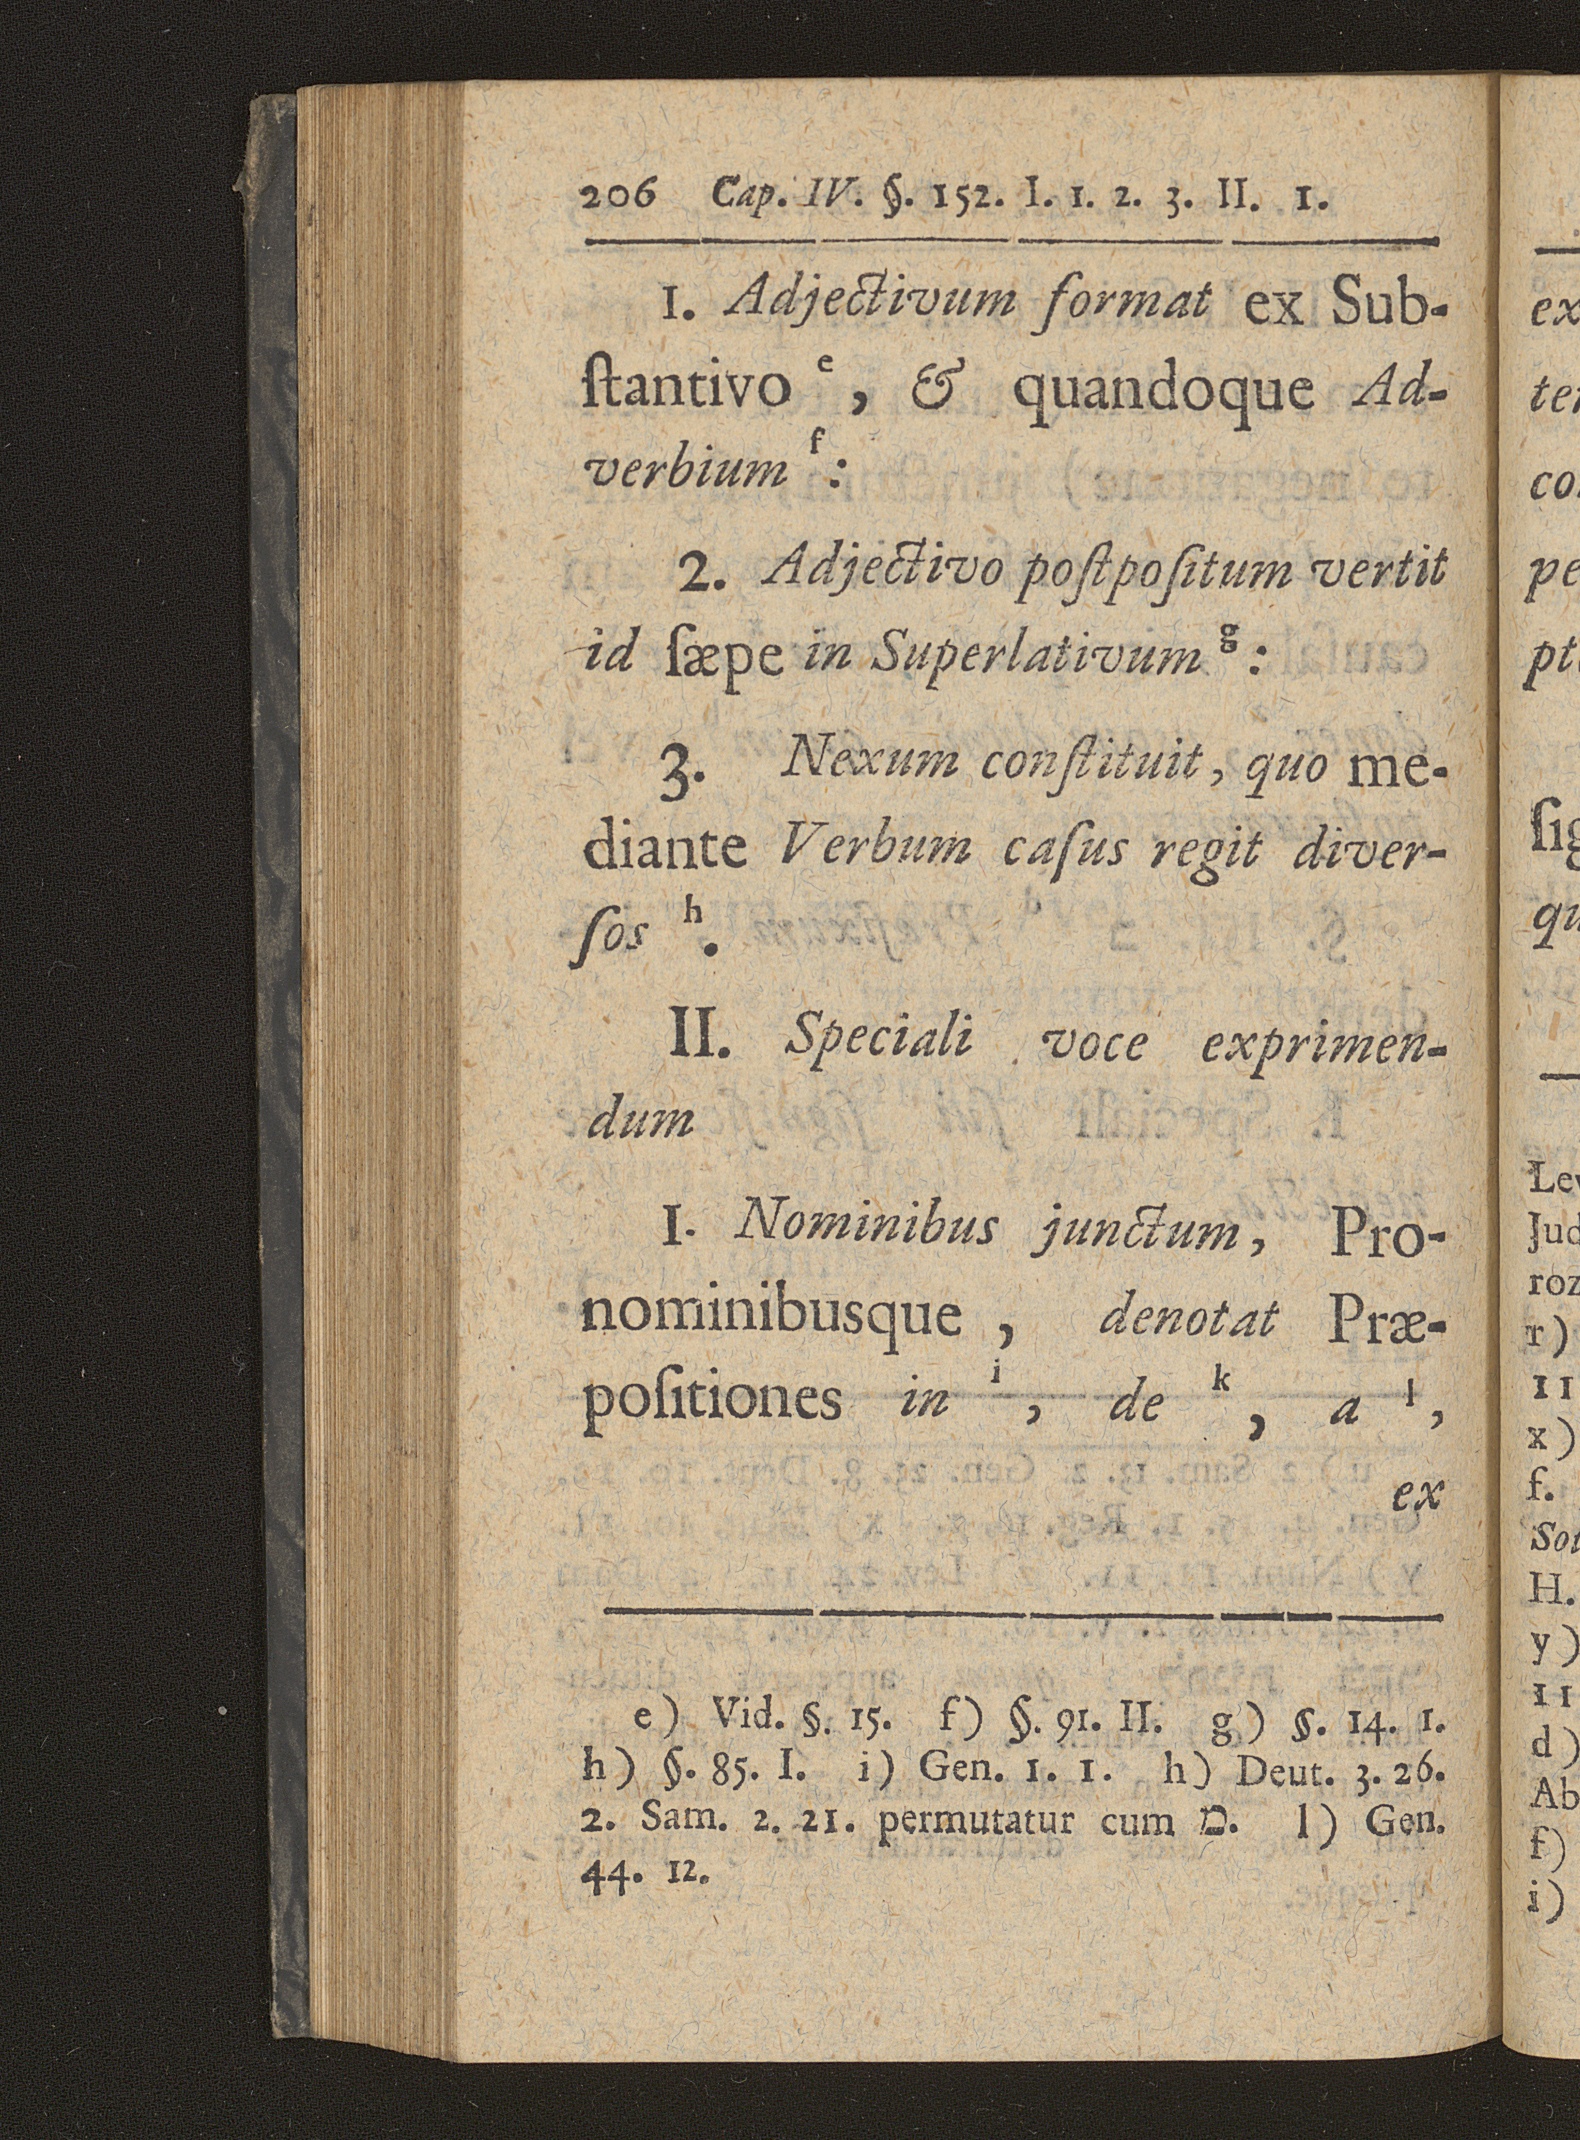 206 Cap. IV. §. 152. I. 1. 2. 3. II. 1.
1. Adjectivum format ex Sub-
ſtantivo e, & quandoque Ad-
verbium f:
2. Adjectivo poſtpoſitum vertit
id ſæpe in Superlativum g:
3. Nexum conſtituit, quo me-
diante Verbum caſus regit diver-
ſos h.
II. Speciali voce exprimen-
dum
I. Nominibus junctum, Pro-
nominibusque, denotat Præ-
poſitiones in i, de k, a l,
ex
e) Vid. §. 15. f) §. 91. II. g) §. 14. 1.
h) §. 85. I. i) Gen. 1. 1. h) Deut. 3. 26.
2. Sam. 2. 21. permutatur cum מ. l) Gen.
44. 12.
ex
co
pe
ſig
qu
Jud
roz
r)
11
x)
f.
H.
y)
11
d)
Ab
f)
i)